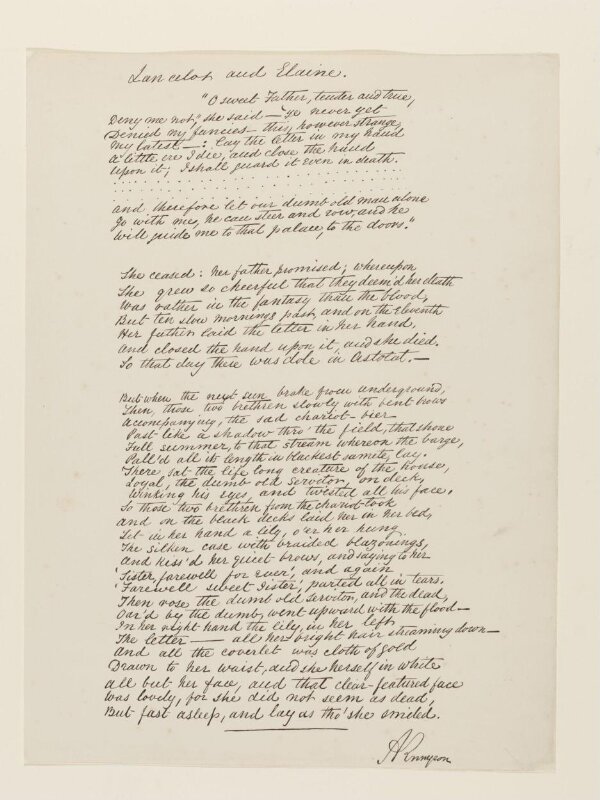 Lancelot and Elaine.
"O sweet Father, tender and true,
Deny me not," she said — "ye never yet
Denied my fancies — this, however strange,
My latest — : Lay the letter in my hand
A little ere I die, and close the hand
Upon it; I shall guard it even in death.
. . . . . . . . . . . . . . . . . . . . . . . .
. . . . . . . . . . . . . . . . . . . . . . . .
And therefore let our dumb old man alone
Go with me, he can steer and row, and he
Will guide me to that palace, to the doors."
She ceased: her father promised; whereupon
She grew so cheerful that they deem'd her death
Was rather in the fantasy than the blood,
But ten slow mornings past, and on the eleventh
Her father laid the letter in her hand,
And closed the hand upon it, and she died.
So that day there was dole in Astolat. —
But when the next sun brake from underground,
Then, those two brethren slowly with bent brows
Accompanying, the sad chariot-bier
Past like a shadow thro' the field, that shone
Full summer, to that stream whereon the barge,
Pall'd all its length in blackest samite, lay.
There sat the life long creature of the house,
Loyal, the dumb old servitor, on deck,
Winking his eyes, and twisted all his face.
So those two brethren from the chariot took
And on the black decks laid her in her bed,
Set in her hand a lily, o'er her hung
The silken case with braided blazonings,
And kiss'd her quiet brows, and saying to her
'Sister, farewell for ever', and again
'Farewell sweet Sister', parted all in tears.
Then rose the dumb old servitor, and the dead,
Oar'd by the dumb, went upward with the flood —
In her right hand the lily, in her left
The letter — all her bright hair streaming down —
And all the coverlet was cloth of gold
Drawn to her waist, and she herself in white
All but her face, and that clear-featured face
Was lovely, for she did not seem as dead,
But fast asleep, and lay as tho' she smiled.
A Tennyson